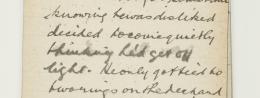 knowing he was disliked
decided to come quietly
thinking he'd get off
light. He only got tied to
two rings on the deck and